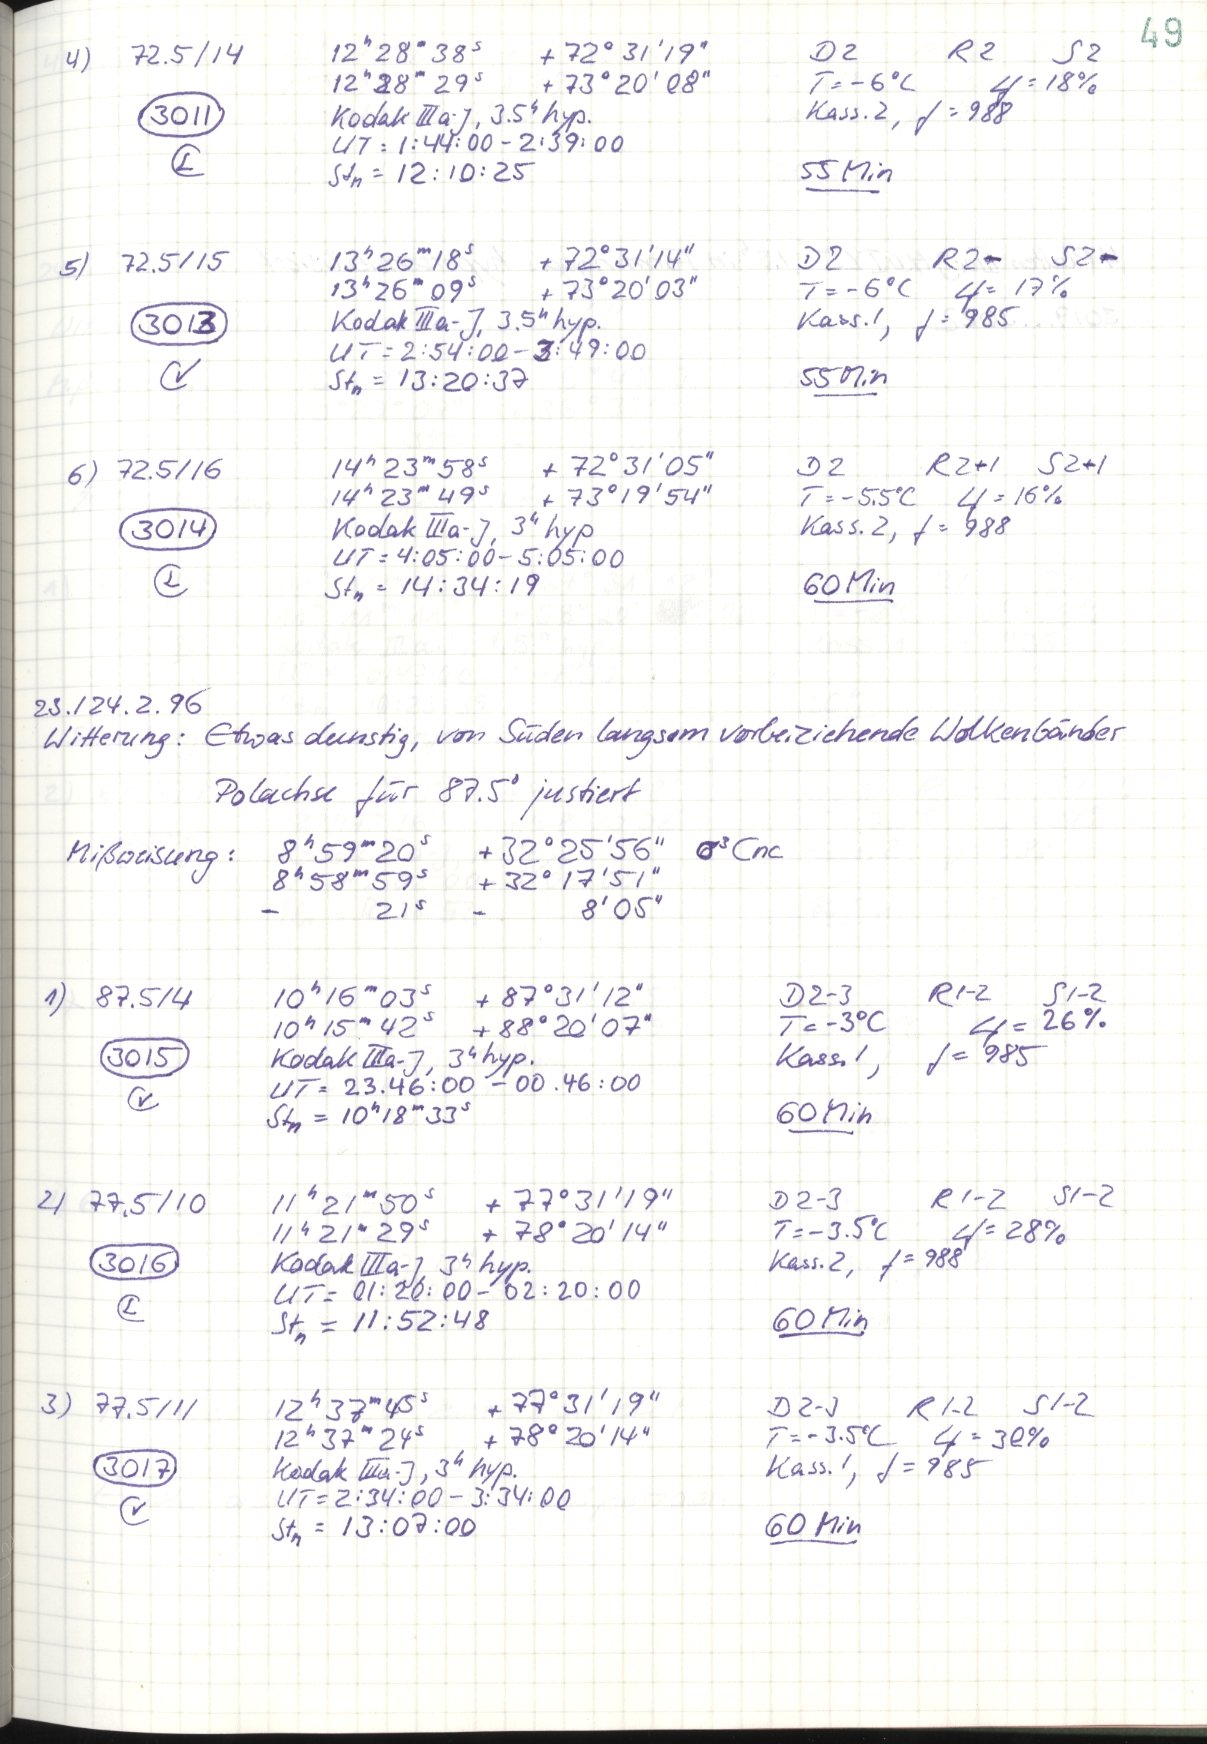 49
4) 72.5/14 12ʰ28ᵐ38ˢ +72°31'19" D2 R2 S2
12ʰ28ᵐ29ˢ +73°20'08" T=-6°C φ=18%
3011 Kodak IIIa-J, 3.5ʰ hyp. Kass.2, f=988
UT=1:44:00-2:39:00
Stₙ=12:10:25 55 Min
5) 72.5/15 13ʰ26ᵐ18ˢ +72°31'14" D2 R2- S2-
13ʰ26ᵐ09ˢ +73°20'03" T=-6°C φ=17%
3013 Kodak IIIa-J, 3.5ʰ hyp. Kass.1, f=985
UT=2:54:00-3:49:00
✓ Stₙ=13:20:37 55 Min
6) 72.5/16 14ʰ23ᵐ58ˢ +72°31'05" D2 R2+1 S2+1
14ʰ23ᵐ49ˢ +73°19'54" T=-5.5°C φ=16%
3014 Kodak IIIa-J, 3ʰ hyp Kass.2, f=988
UT=4:05:00-5:05:00
Stₙ=14:34:19 60 Min
23./24.2.96
Witterung: Etwas dunstig, von Süden langsam vorbeiziehende Wolkenbänder
Polachse für 87.5° justiert
Mißweisung: 8ʰ59ᵐ20ˢ +32°25'56" σ³Cnc
8ʰ58ᵐ59ˢ +32°17'51"
- 21ˢ - 8'05"
1) 87.5/4 10ʰ16ᵐ03ˢ +87°31'12" D2-3 R1-2 S1-2
10ʰ15ᵐ42ˢ +88°20'07" T=-3°C φ=26%
3015 Kodak IIIa-J, 3ʰ hyp. Kass.1, f=985
✓ UT=23.46:00-00.46:00
Stₙ=10ʰ18ᵐ33ˢ 60 Min
2) 77.5/10 11ʰ21ᵐ50ˢ +77°31'19" D2-3 R1-2 S1-2
11ʰ21ᵐ29ˢ +78°20'14" T=-3.5°C φ=28%
3016 Kodak IIIa-J 3ʰ hyp. Kass.2, f=988
UT=01:20:00-02:20:00
Stₙ=11:52:48 60 Min
3) 77.5/11 12ʰ37ᵐ45ˢ +77°31'19" D2-3 R1-2 S1-2
12ʰ37ᵐ24ˢ +78°20'14" T=-3.5°C φ=30%
3017 Kodak IIIa-J, 3ʰ hyp. Kass.1, f=985
UT=2:34:00-3:34:00
✓ Stₙ=13:07:00 60 Min